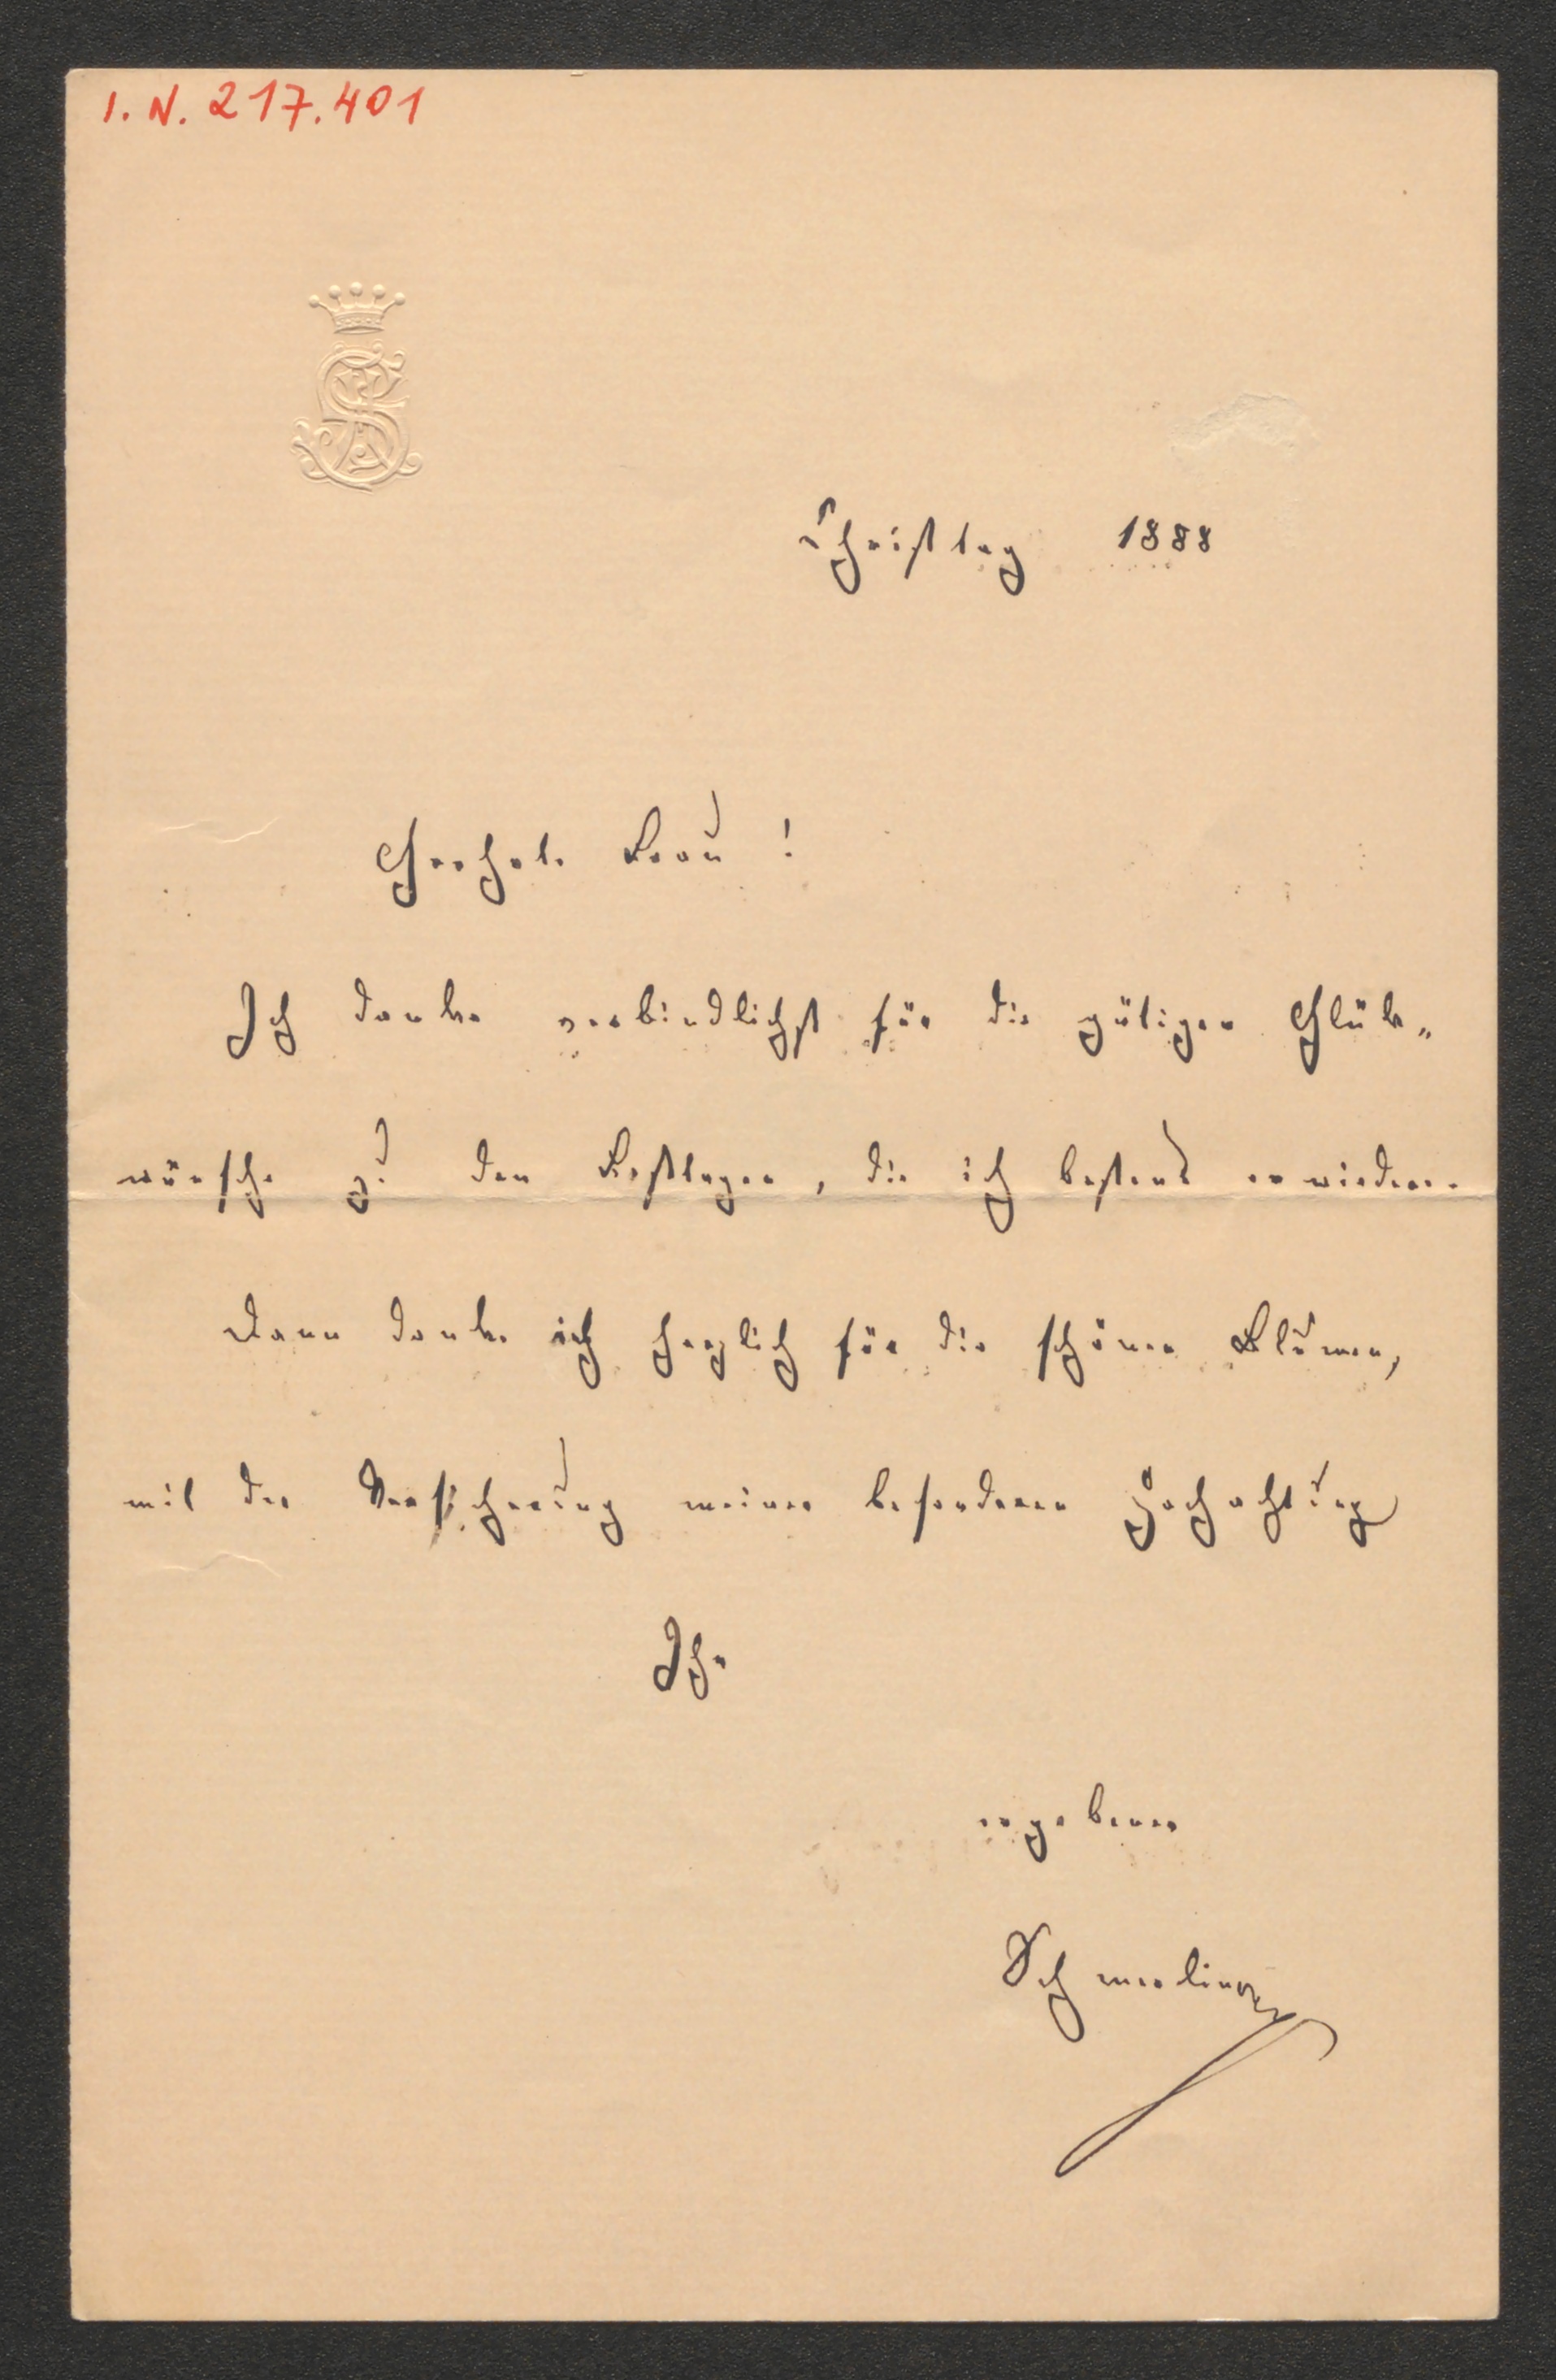 I. N. 217.401
Christtag 1888
Geehrte Frau !
Ich danke verbindlichst für die gütigen Glük„
wünsche zu den Festtagen, die ich bestens erwiedere.
Dann danke ich herzlich für die schönen Blumen,
mit der Versicherung meiner besonderen Hochachtung
Ihr
ergebener
Schmerling